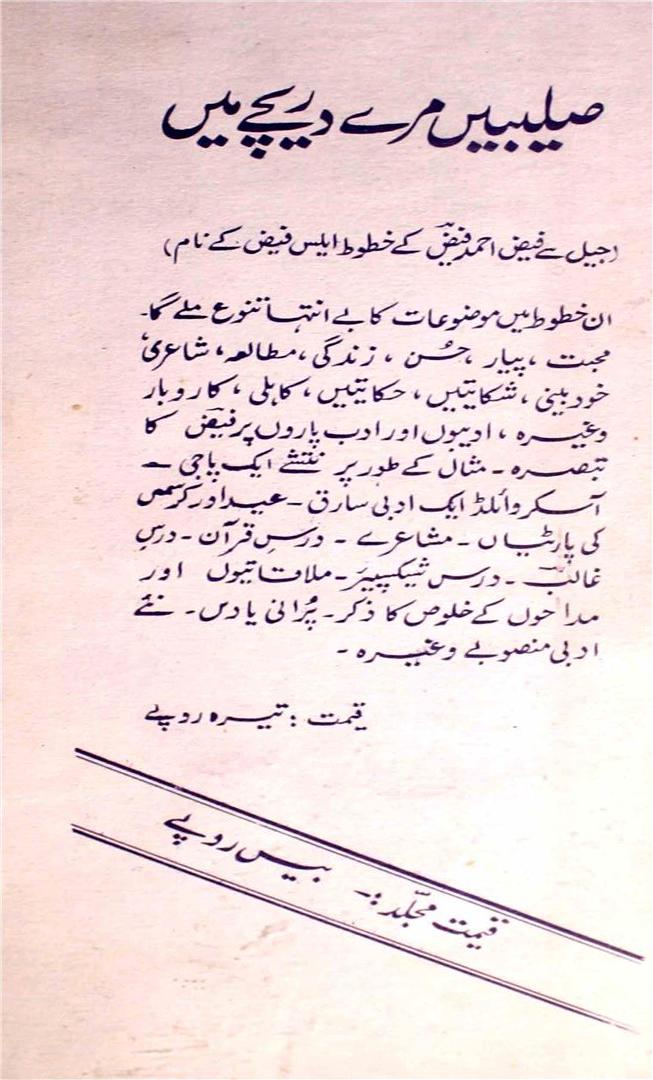 صلیبیں مرے دریچے میں
(جیل سے فیض احمد فیضؔ کے خطوط ایلس فیض کے نام)
ان خطوط میں موضوعات کا بے انتہا تنوع ملے گا۔
محبت، پیار، حُسن، زندگی، مطالعہ، شاعری،
خود بینی، شکایتیں، حکایتیں، کاہلی، کاروبار
وغیرہ، ادیبوں اور ادب پاروں پر فیضؔ کا
تبصرہ۔ مثال کے طور پر نتشے ایک پاجی ۔
آسکر وائلڈ ایک ادبی سارق۔ عید اور کرسمس
کی پارٹیاں۔ مشاعرے۔ درسِ قرآن۔ درسِ
غالبؔ۔ درس شیکسپیئر۔ ملاقاتیوں اور
مداحوں کے خلوص کا ذکر۔ پُرانی یادیں۔ نئے
ادبی منصوبے وغیرہ۔
قیمت : تیرہ روپے
قیمت مجلّد :۔ بیس روپے